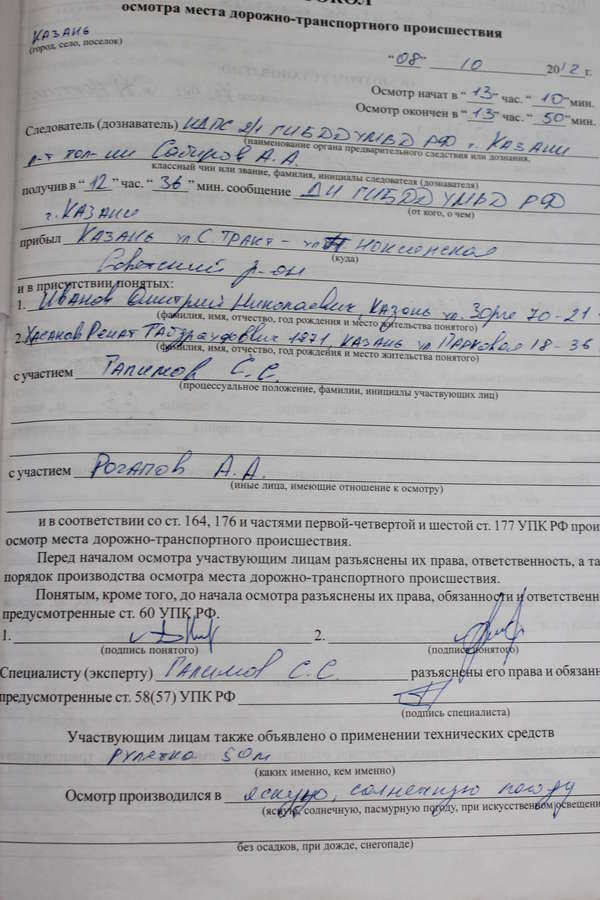 осмотра места дорожно-транспортного происшествия
Казань
(город, село, поселок)
"08" 10 2012 г.
Осмотр начат в "13" час. "10" мин.
Осмотр окончен в "13" час. "50" мин.
Следователь (дознаватель) ИДПС ГИБДД УМВД РФ г. Казани
(наименование органа предварительного следствия или дознания,
л-т пол-ии Сабиров А.А.
классный чин или звание, фамилия, инициалы следователя (дознавателя)
получив в "12" час. "36" мин. сообщение ДЧ ГИБДД УМВД РФ
(от кого, о чем)
г. Казани
прибыл Казань ул С. Тракт - ул Ноксинская
(куда)
Советский р-он
и в присутствии понятых:
1. Иванов Дмитрий Николаевич, Казань ул. Зорге 70-21
(фамилия, имя, отчество, год рождения и место жительства понятого)
2. Хасанов Ренат 1971, Казань ул Парковая 18-36
(фамилия, имя, отчество, год рождения и место жительства понятого)
с участием Галимов С.С.
(процессуальное положение, фамилии, инициалы участвующих лиц)
с участием Рогапов А.А.
(иные лица, имеющие отношение к осмотру)
и в соответствии со ст. 164, 176 и частями первой-четвертой и шестой ст. 177 УПК РФ прои
осмотр места дорожно-транспортного происшествия.
Перед началом осмотра участвующим лицам разъяснены их права, ответственность, а та
порядок производства осмотра места дорожно-транспортного происшествия.
Понятым, кроме того, до начала осмотра разъяснены их права, обязанности и ответственн
предусмотренные ст. 60 УПК РФ.
1. 2.
(подпись понятого) (подпись понятого)
Специалисту (эксперту) Галимов С.С. разъяснены его права и обязанн
предусмотренные ст. 58(57) УПК РФ
(подпись специалиста)
Участвующим лицам также объявлено о применении технических средств
рулетка 50м
(каких именно, кем именно)
Осмотр производился в ясную, солнечную погоду
(ясную, солнечную, пасмурную погоду, при искусственном освещени
без осадков, при дожде, снегопаде)